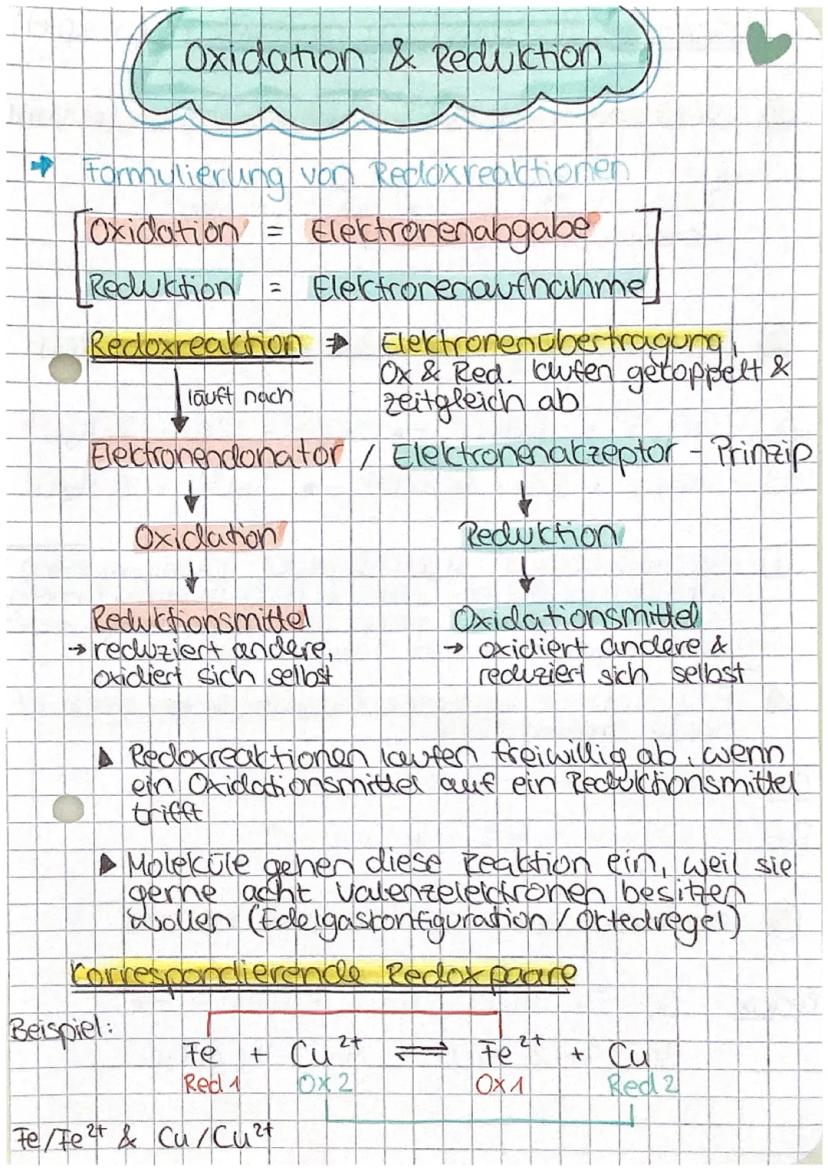 Oxidation & Reduktion
→ Formulierung von Redoxreaktionen
Oxidation = Elektronenabgabe
Reduktion = Elektronenaufnahme
Redoxreaktion ⇒ Elektronenübertragung,
Ox & Red. laufen gekoppelt &
zeitgleich ab
läuft nach
Elektronendonator / Elektronenakzeptor - Prinzip
Oxidation Reduktion
Reduktionsmittel Oxidationsmittel
→ reduziert andere, → oxidiert andere &
oxidiert sich selbst reduziert sich selbst
▶ Redoxreaktionen laufen freiwillig ab, wenn
ein Oxidationsmittel auf ein Reduktionsmittel
trifft
▶ Moleküle gehen diese Reaktion ein, weil sie
gerne acht Valenzelektronen besitzen
wollen (Edelgaskonfiguration / Oktedregel)
Korrespondierende Redoxpaare
Beispiel:
Fe + Cu²⁺ ⇌ Fe²⁺ + Cu
Red 1 Ox 2 Ox 1 Red 2
Fe/Fe²⁺ & Cu/Cu²⁺